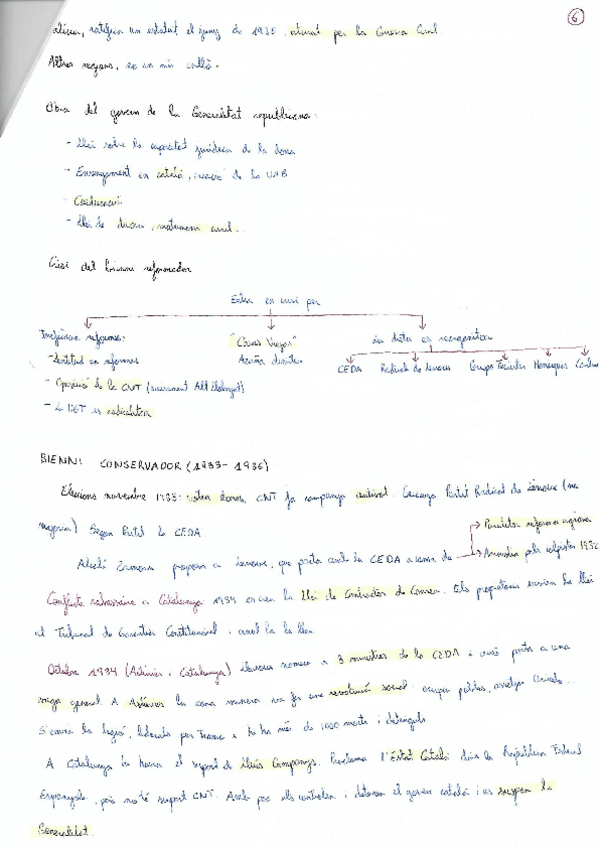 6
un estatut el juny de 1935, aturat per la Guerra Civil
Altres regions, no van més enllà.
Obra del govern de la Generalitat republicana:
- Llei sobre la capacitat jurídica de la dona
- Ensenyament en català, creació de la UAB
- Coeducació
- Llei de divorci, matrimoni civil..
Crisi del bienni reformador
Entra en crisi per
reformes:
"Casas Viejas"
la dreta es reorganitza
- Lentitud en reformes
Azaña dimiteix
- Oposició de la CNT
CEDA
- L'UGT es radicalitza
BIENNI CONSERVADOR (1933-1936)
Eleccions novembre 1933: voten dones, CNT fa campanya activa. Guanya Partit Radical de Lerroux (no
majoria) Segon Partit la CEDA
Paralitzar reforma agrària
Alcalá Zamora proposa a Lerroux, que pacta amb la CEDA a canvi de
Amnistia pels colpistes 1932
Conflicte rabassaire a Catalunya 1934 es crea la Llei de Contractes de Conreu. Els propietaris envien la llei
al Tribunal de Garanties Constitucional i anul·la la llei.
Octubre 1934 (Astúries i Catalunya) Lerroux nomena a 3 ministres de la CEDA i això porta a una
vaga general. A Astúries la zona minera va fer una revolució social
S'envia la legió, liderada per Franco i hi ha més de 1000 morts i detinguts
A Catalunya hi havia el suport de Lluís Companys. Proclama l'Estat Català dins la República Federal
Espanyola, però no té suport CNT. Amb poc els controlen i detenen el govern català i es suspèn la
Generalitat.